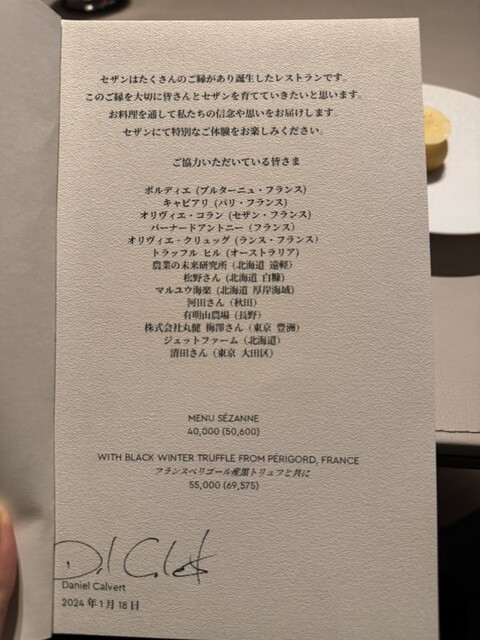 セザンはたくさんのご縁があり誕生したレストランです。
このご縁を大切に皆さんとセザンを育てていきたいと思います。
お料理を通して私たちの信念や思いをお届けします。
セザンにて特別なご体験をお楽しみください。
ご協力いただいている皆さま
ボルディエ (ブルターニュ・フランス)
キャビアリ (パリ・フランス)
オリヴィエ・コラン (セザン・フランス)
バーナードアントニー (フランス)
オリヴィエ・クリュッグ (ランス・フランス)
トラッフル ヒル (オーストラリア)
農業の未来研究所 (北海道 遠軽)
松野さん (北海道 白糠)
マルユウ海楽 (北海道 厚岸海域)
河田さん (秋田)
有明山農場 (長野)
株式会社丸健 梅澤さん (東京 豊洲)
ジェットファーム (北海道)
清田さん (東京 大田区)
MENU SÉZANNE
40,000 (50,600)
WITH BLACK WINTER TRUFFLE FROM PÉRIGORD, FRANCE
フランスペリゴール産黒トリュフと共に
55,000 (69,575)
Daniel Calvert
2024 年 1 月 18 日